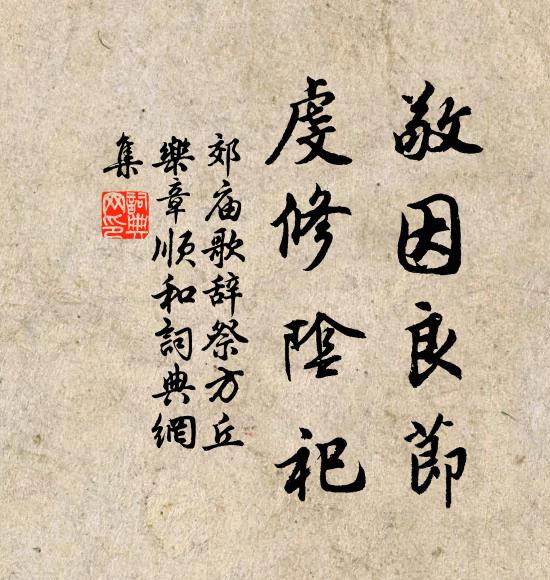 敬因良節
虔修陰祀
郊庙歌辞祭方丘
樂章順和詞典網
集
詞典
网印